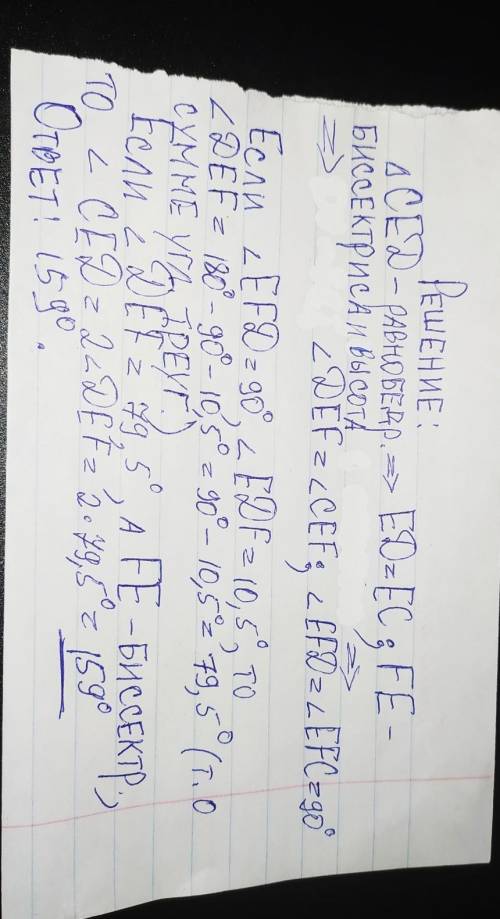 РЕШЕНИЕ:
△CED – РАВНОБЕДР. ⇒ ED=EC; FE –
БИССЕКТРИСА И ВЫСОТА ⇒
⇒ ∠DEF = ∠CEF; ∠EFD = ∠EFC = 90°
ЕСЛИ ∠EFD = 90°, ∠EDF = 10,5°, ТО
∠DEF = 180° - 90° - 10,5° = 90° - 10,5° = 79,5° (Т.О
СУММЕ УГЛ. ТРЕУГ.)
ЕСЛИ ∠DEF = 79,5°, А FE – БИССЕКТР.,
ТО ∠CED = 2∠DEF = 2·79,5° = 159°
ОТВЕТ: 159°.